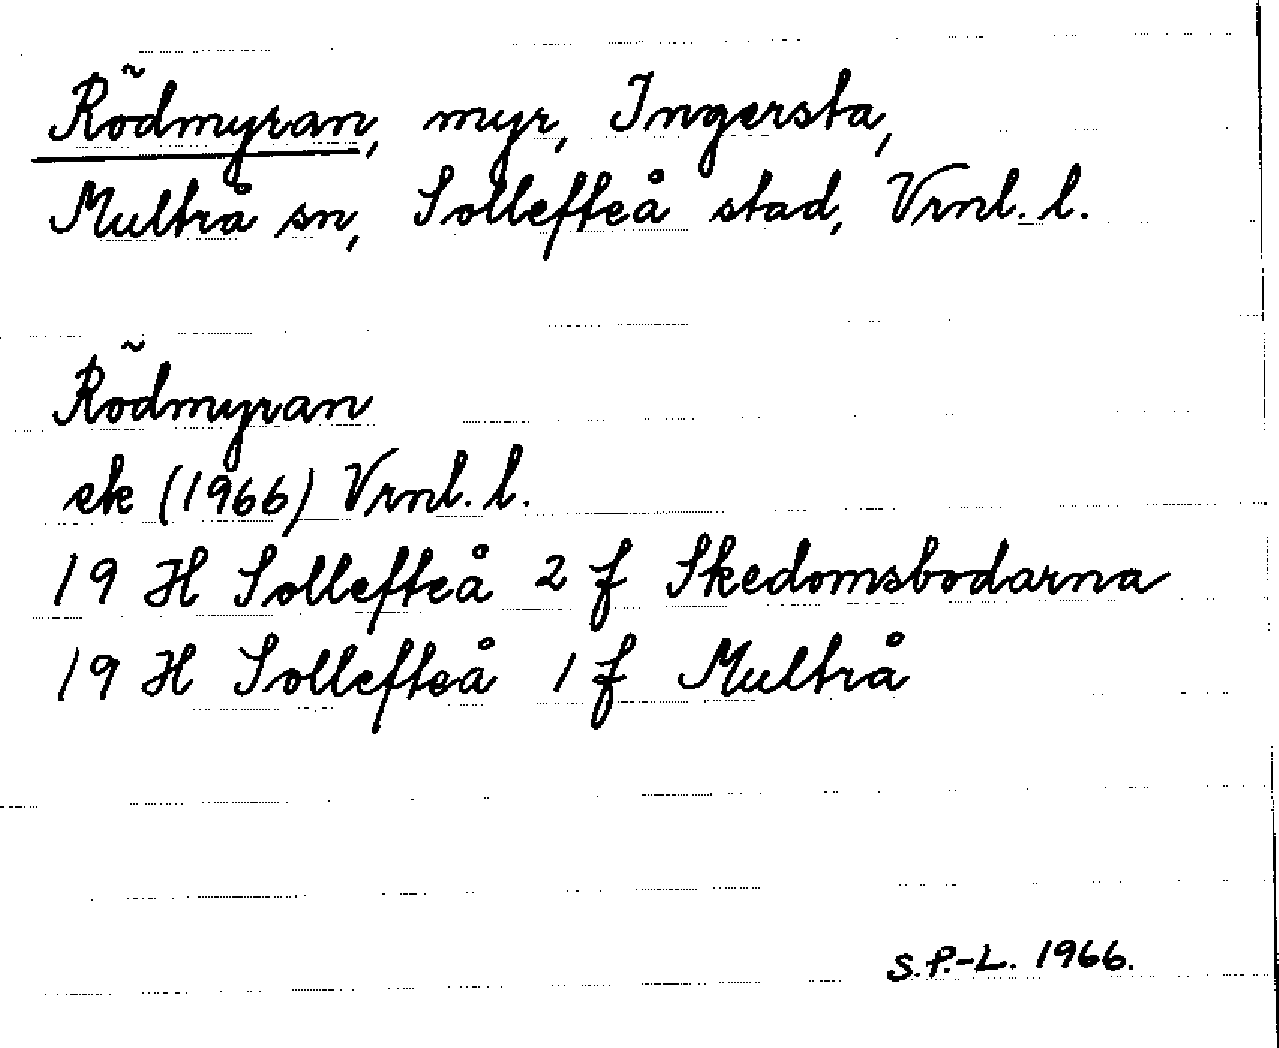 Rödmyran, myr, Ingersta,
Multrå sn, Sollefteå stad, Vrnl. l.
Rödmyran
ek (1966) Vrnl. l.
19 H Sollefteå 2 f Skedomsbodarna
19 H Sollefteå 1 f Multrå
S.P.-L. 1966.